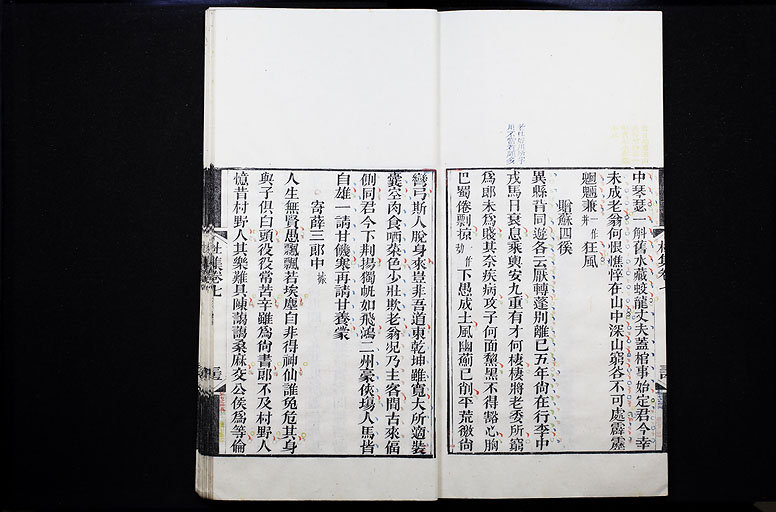 中琴瑟一斛舊水藏蛟龍丈夫蓋棺事始定君今幸
未成老翁何恨憔悴在山中深山窮谷不可處霹靂
魍魎兼一作并狂風
贈蘇四徯
異縣昔同遊各云厭轉蓬別離已五年尚在行李中
戎馬日衰息乘輿安九重有才何棲棲將老委所窮
爲郎未爲賤其奈疾病攻子何面黧黑不得豁心胸
巴蜀倦剽掠一作劫下愚成土風幽薊已削平荒徼尚
彎弓斯人脫身來豈非吾道東乾坤雖寬大所適裝
囊空肉食哂菜色少壯欺老翁況乃主客間古來偪
側同君今下荆揚獨帆如飛鴻二州豪俠場人馬皆
自雄一請甘饑寒再請甘養蒙
寄薛三郎中
人生無賢愚飄飄若埃塵自非得神仙誰免危其身
與子俱白頭役役常苦辛雖爲尚書郎不及村野人
憶昔村野人其樂難具陳藹藹桑麻交公侯爲等倫
杜集卷七